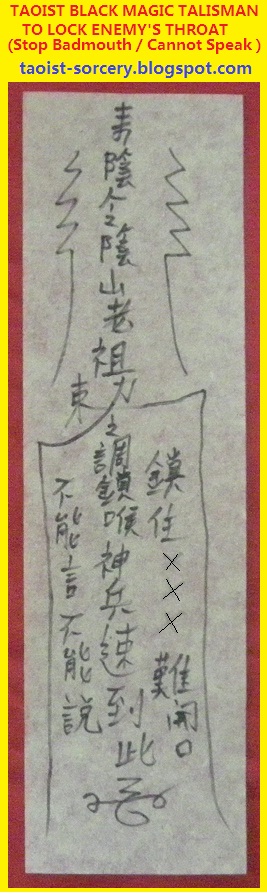 TAOIST BLACK MAGIC TALISMAN
TO LOCK ENEMY'S THROAT
(Stop Badmouth / Cannot Speak )
taoist-sorcery.blogspot.com
陰仝陰山老祖力
束
之調鎖喉神兵速到此
鎖住XXX難開口
不能言不能說